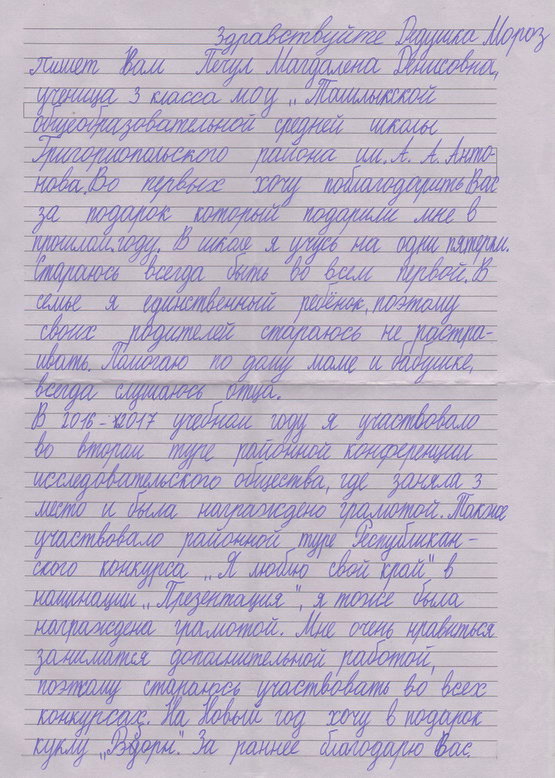 Здравствуйте Дедушка Мороз
Пишет Вам Печул Магдалена Денисовна,
ученица 3 класса МОУ „Ташлыкской
общеобразовательной средней школы
Григориопольского района им. А. А. Анто-
нова. Во первых хочу поблагодарить Вас
за подарок который подарили мне в
прошлом году. В школе я учусь на одни пятерки.
Стараюсь всегда быть во всем первой. В
семье я единственный ребёнок, поэтому
своих родителей стараюсь не растра-
ивать. Помогаю по дому маме и бабушке,
всегда слушаюсь отца.
В 2016-2017 учебном году я участвовало
во втором туре районной конференции
исследовательского общества, где заняла 3
место и была награждено грамотой. Также
участвовало районной туре Республикан-
ского конкурса „Я люблю свой край" в
номинации „Презентация", я тоже была
награждена грамотой. Мне очень нравиться
заниматся дополнительной работой,
поэтому стараюсь участвовать во всех
конкурсах. На Новый год хочу в подарок
куклу За раннее благодарю Вас.